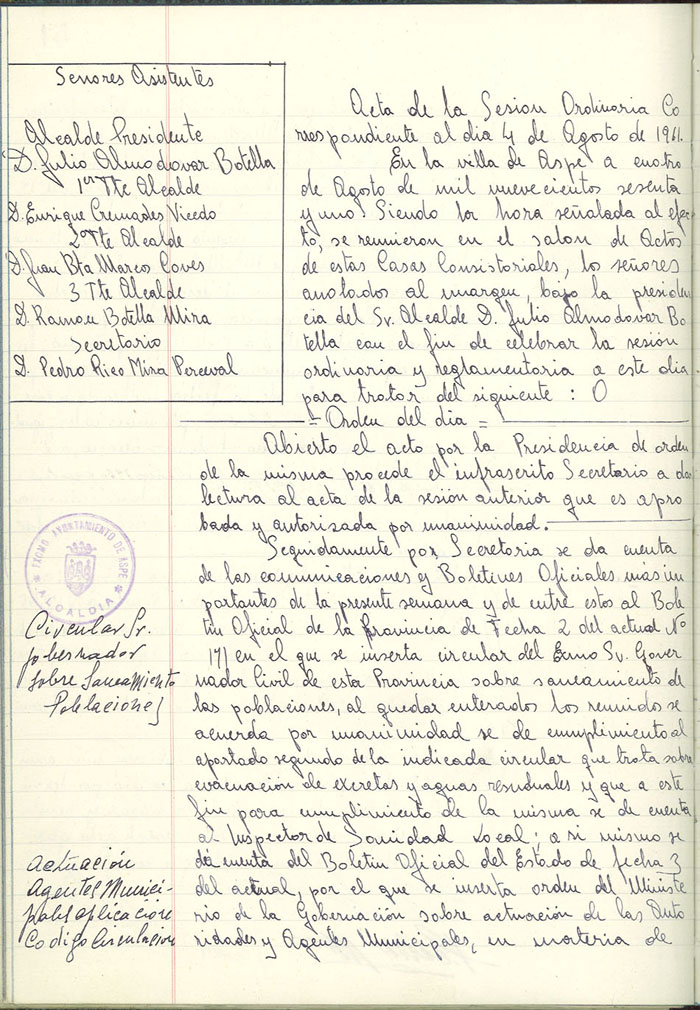 Señores Asistentes
Alcalde Presidente
D. Julio Almodovar Botella
1er Tte Alcalde
D. Enrique Cremades Vicedo
2º Tte Alcalde
D. Juan Bta Marcos Caves
3 Tte Alcalde
D. Ramon Botella Mira
Secretario
D. Pedro Rico Mira Perceval
Acta de la Sesion Ordinaria Co
rrespondiente al dia 4 de Agosto de 1961.
En la villa de Aspe a cuatro
de Agosto de mil nuevecientos sesenta
y uno. Siendo la hora señalada al efec
to, se reunieron en el salon de Actos
de estas Casas Consistoriales, los señores
anotados al margen, bajo la presiden
cia del Sr. Alcalde D. Julio Almodovar Bo
tella con el fin de celebrar la sesión
ordinaria y reglamentaria a este dia
para tratar del siguiente : O
= Orden del dia =
Abierto el acto por la Presidencia de orden
de la misma procede el infrascrito Secretario a da
lectura al acta de la sesión anterior que es apro
bada y autorizada por unanimidad.
Seguidamente por Secretaria se da cuenta
de las comunicaciones y Boletines Oficiales mas im
portantes de la presente semana y de entre estos al Bole
tin Oficial de la Provincia de Fecha 2 del actual Nº
171 en el que se inserta circular del Exmo Sr. Gover
nador Civil de esta Provincia sobre saneamiento de
las poblaciones, al quedar enterados los reunidos se
acuerda por unanimidad se de cumplimiento al
apartado segundo de la indicada circular que trata sobre
evacuación de excretas y aguas residuales y que a este
fin para cumplimiento de la misma se de cuenta
al Inspector de Sanidad Local; a si mismo se
da cuenta del Boletin Oficial del Estado de fecha 3
del actual, por el que se inserta orden del Ministe
rio de la Gobernación sobre actuación de las Auto
ridades y Agentes Municipales, en materia de
EXCMO. AYUNTAMIENTO DE ASPE
* ALCALDIA *
Circular Sr.
gobernador
sobre Saneamiento
Poblaciones
Actuación
Agentes Munici-
pales aplicacione
Codigo Circulacion